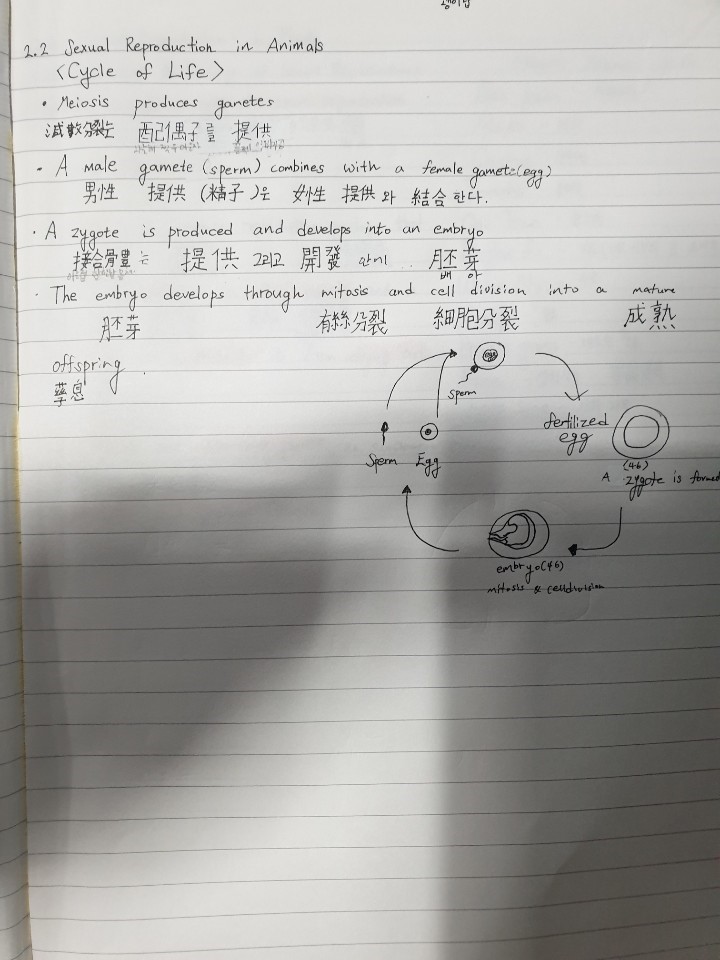 2.2 Sexual Reproduction in Animals
<Cycle of Life>
• Meiosis produces gametes
減數分裂는 配偶子를 提供
• A male gamete (sperm) combines with a female gamete (egg)
男性 提供 (精子)은 女性 提供와 結合한다.
• A zygote is produced and develops into an embryo
接合骨豊는 提供 그리고 開發 胚芽
배아
• The embryo develops through mitosis and cell division into a mature
胚芽 有絲分裂 細胞分裂 成熟
offspring.
息
sperm
fertilized
egg
Sperm Egg
(46)
A zygote is formed
embryo (46)
mitosis & cell division